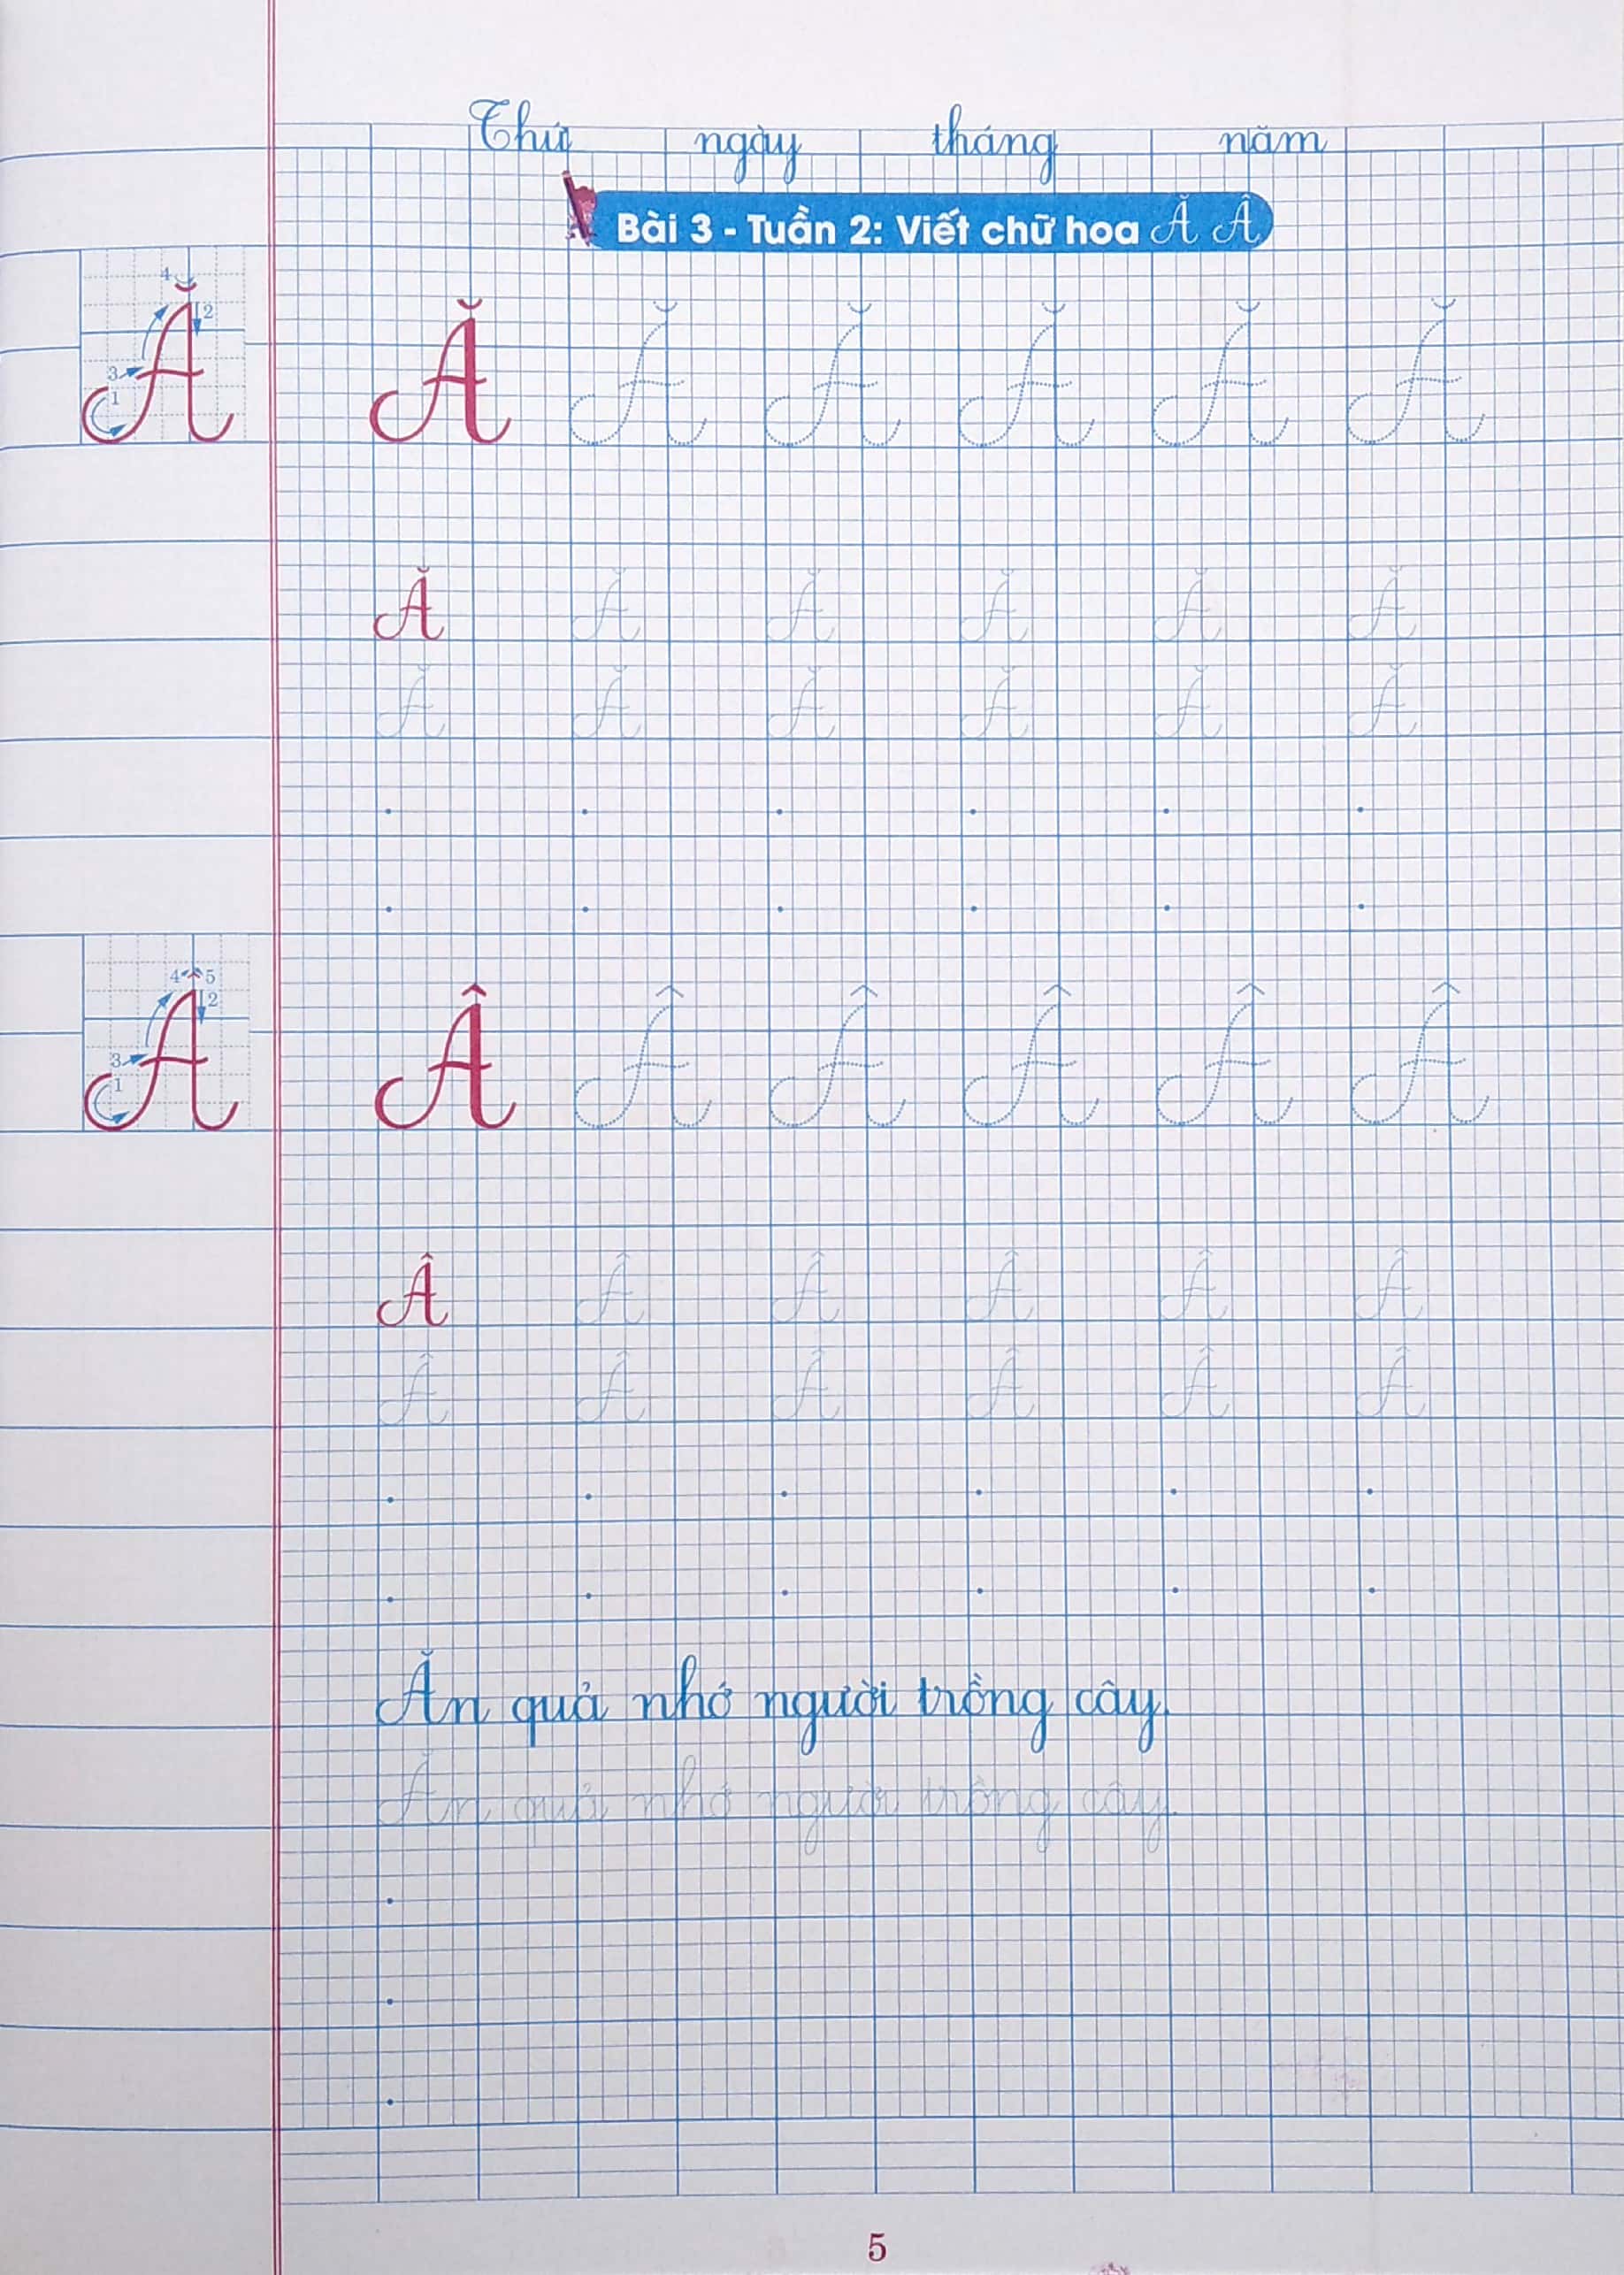 Thứ ngày tháng năm
Bài 3 - Tuần 2: Viết chữ hoa Ă Â
4 2 3 1 Ă
Ă Ă Ă Ă Ă Ă
Ă Ă Ă Ă Ă Ă
Ă Ă Ă Ă Ă Ă
4 5 2 3 1 Â
Â Â Â Â Â Â
Â Â Â Â Â Â
Â Â Â Â Â Â
Ăn quả nhớ người trồng cây.
Ăn quả nhớ người trồng cây.
5